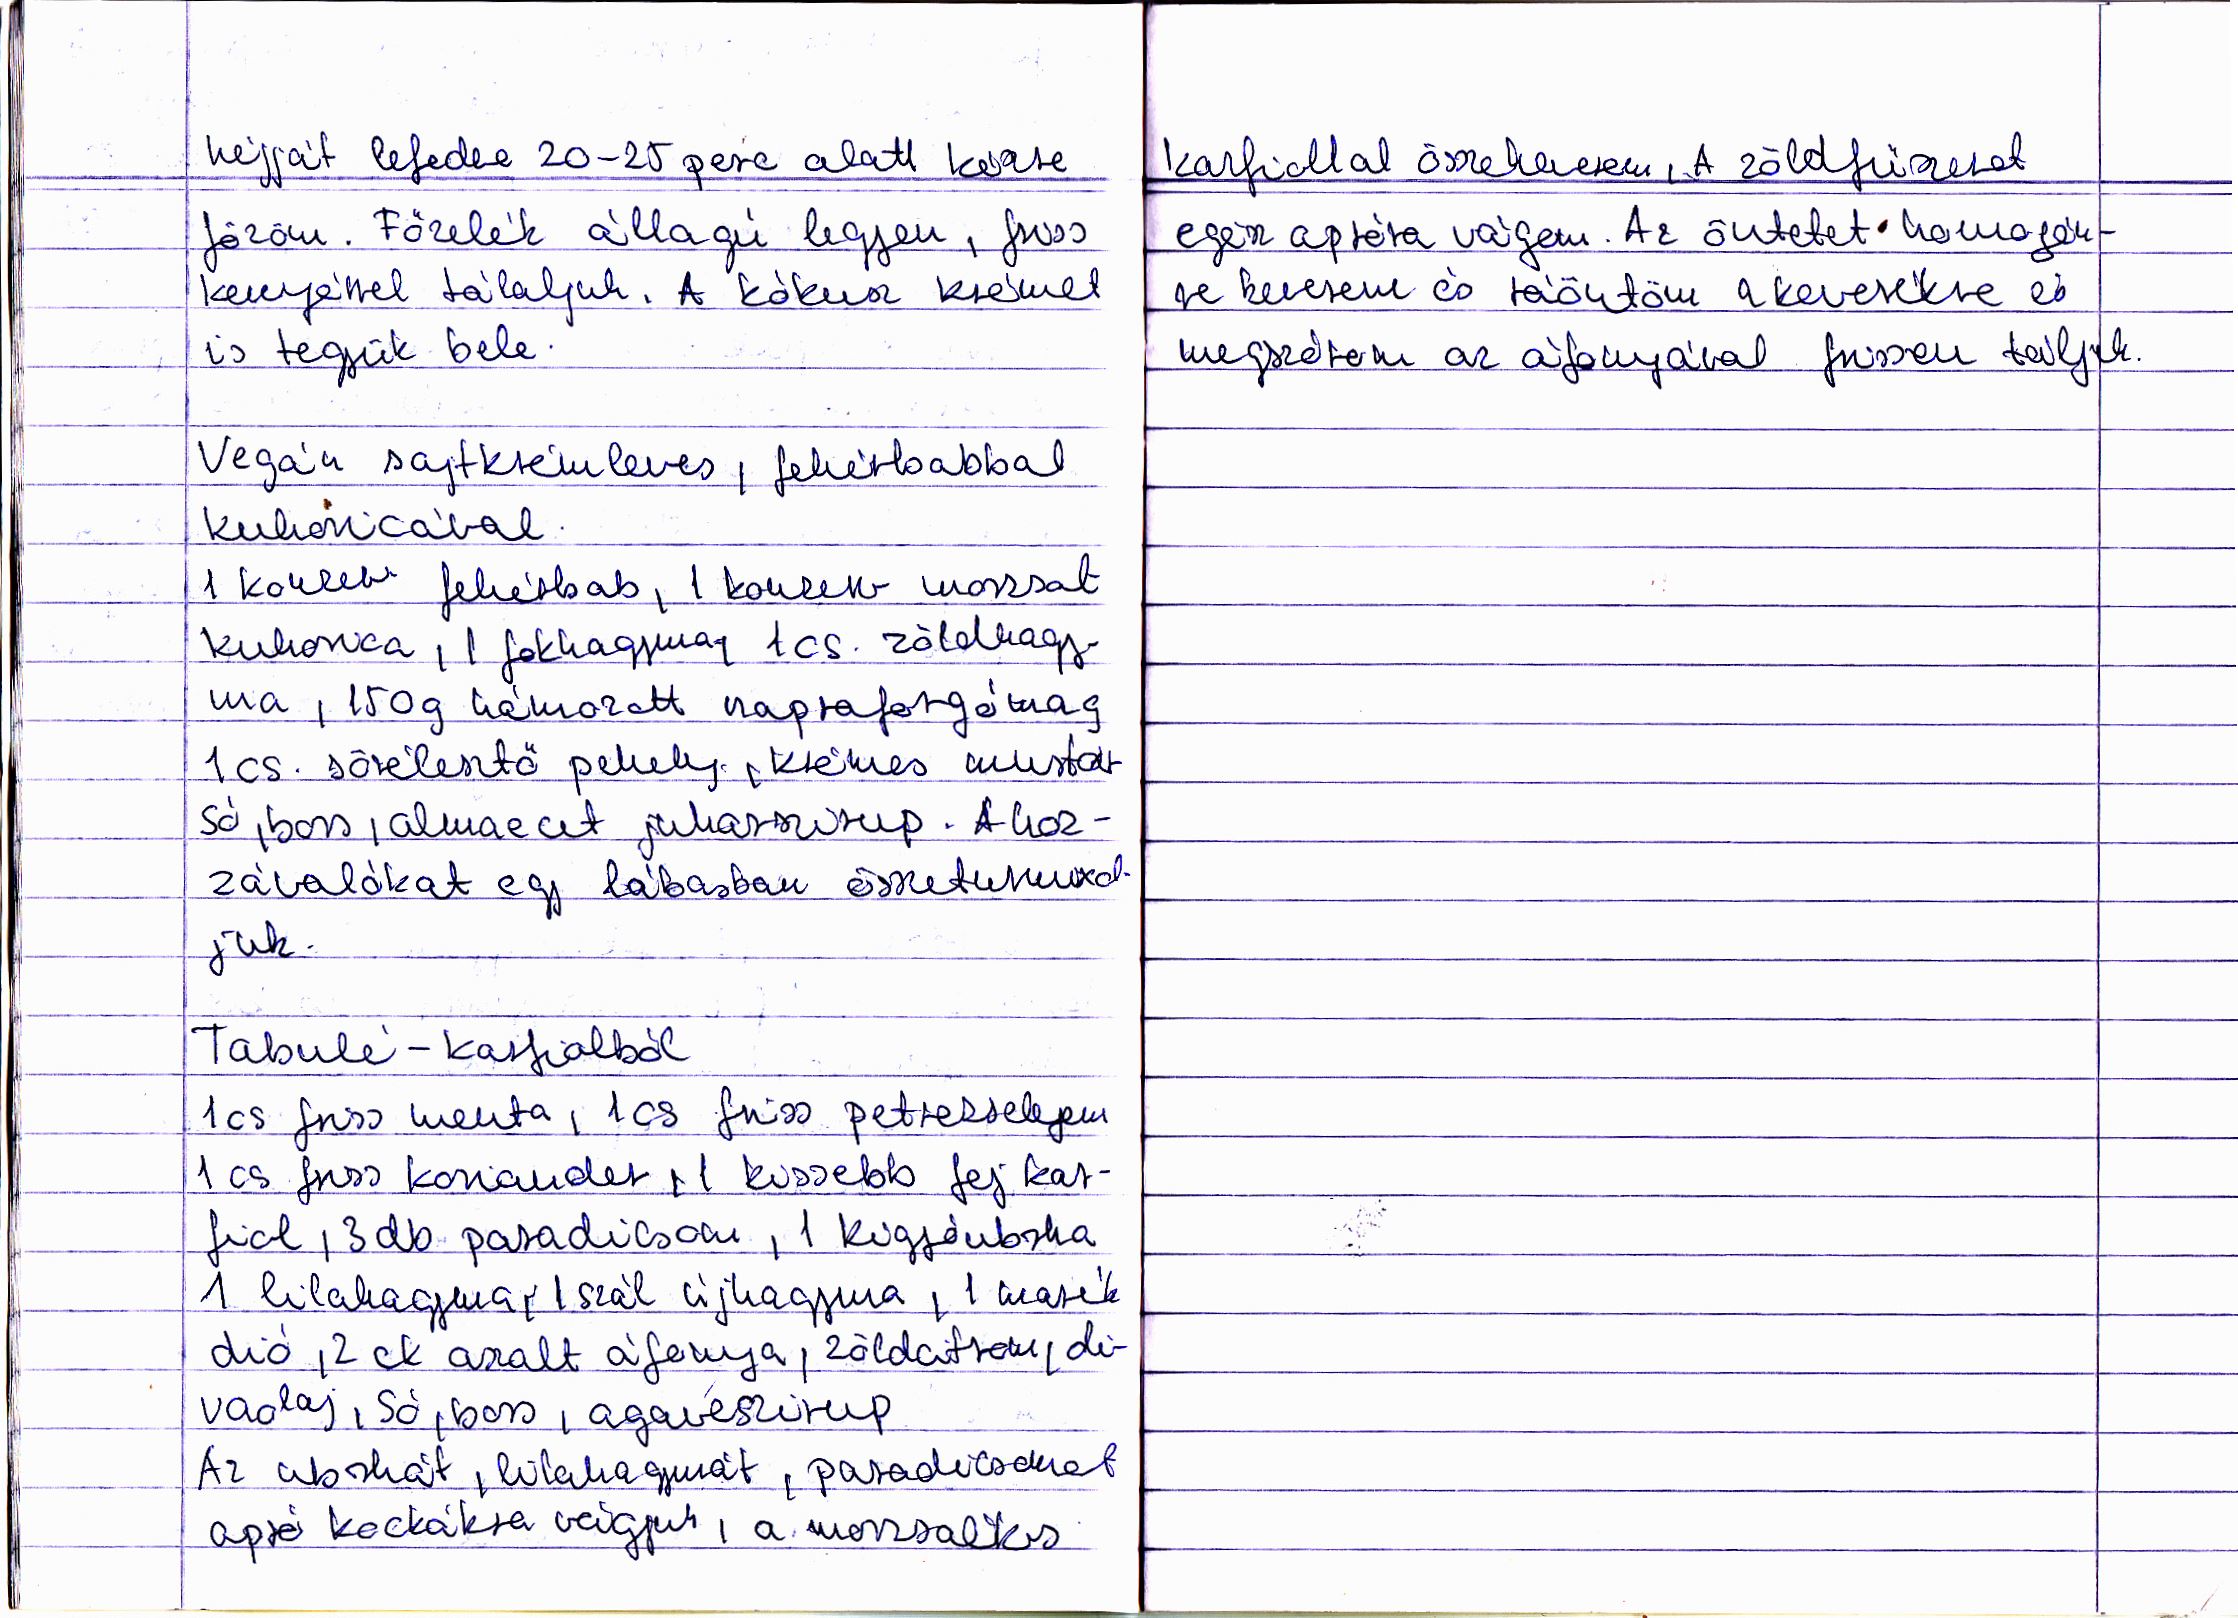 héjját lefedve 20-25 perc alatt készre
főzöm. Főzelék állagú legyen, friss
kenyérrel tálaljuk. A kókusz krémet
is tegyük bele.
Vegán sajtkrémleves, fehérbabbal
kukoricával.
1 konzerv fehérbab, 1 konzerv morzsolt
kukorica, 1 fokhagyma, 1 cs. zöldhagy-
ma, 150g hámozott napraforgómag
1 cs. sörélesztő pehely, krémes mustár
só, bors, almaecet juharszirup. A hoz-
závalókat egy lábasban összeturmixol-
juk.
Tabulé - karfiolból
1 cs friss menta, 1 cs friss petrezselyem
1 cs friss koriander, 1 kissebb fej kar-
fiol, 3 db paradicsom, 1 kigyóuborka
1 lilahagyma, 1 szál újhagyma, 1 marék
dió, 2 ek aszalt áfonya, zöldcitrom, oli-
vaolaj, só, bors, agavészirup
Az uborkát, lilahagymát, paradicsomot
apró kockákra vágjuk, a morzsalékos
karfiollal összekeverem. A zöldfűszeret
egész apróra vágom. Az öntetet homogén-
re keverem és ráöntöm a keverékre és
megszórom az áfonyával frissen táljuk.